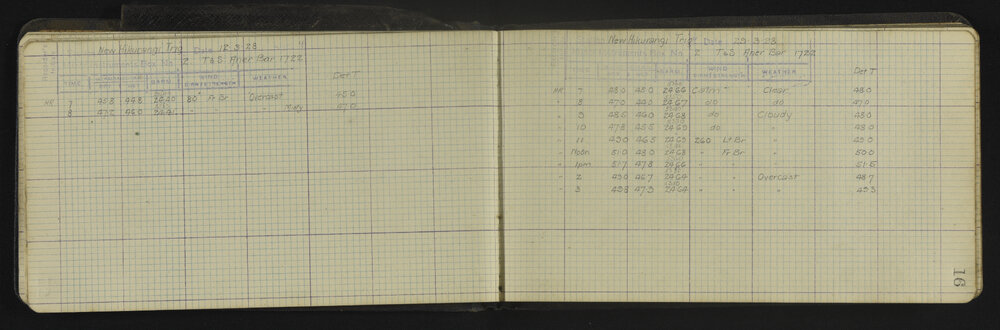 New Hikurangi Trig Date 12-3-28
Instruments Box No 2 T&S Aner Bar 1722
TIME BARO WIND DIR & STRENGTH WEATHER Det T
HR 7 45.8 44.8 24.40 80° Fr Br Overcast 45.0
8 47.2 46.0 24.41 " " " Misty 47.0
New Hikurangi Trig Date 23-3-28
Instruments Box No 2 T&S Aner Bar 1722
BARO WIND DIR & STRENGTH WEATHER Det T
HR 7 48.0 45.0 24.66 Calm Clear 48.0
" 8 47.0 44.0 24.67 do do 47.0
" 9 48.5 46.0 24.68 do Cloudy 48.0
" 10 47.8 45.5 do " 48.0
" 11 49.0 46.5 260 Lt Br " 49.0
" Noon 51.0 48.0 " Fr Br " 50.0
" 1pm 51.7 47.8 " " " 51.5
" 2 49.0 46.7 24.64 " " Overcast 48.7
" 3 49.8 47.3 24.64 " " " 49.3
16